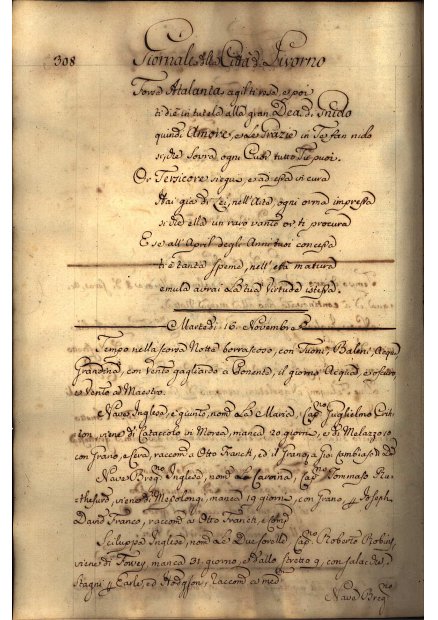 308 Giornale della Città di Livorno
Forse Atalanta, agil ti rese, e poi
ti diè in tutela alla gran Dea di Gnido
quindi Amore, e le Grazie in Te fan nido
ogni Cuor tutto Tu puoi.
Or Tersicore siegue, ed essa in cura
Hai già di Lei, nell'Arte, ogni orma impressa
ed ella un raro vanto or ti procura
E se all'April degli Anni tuoi concessa
ti è tanta speme, nell'età matura
emula avrai la tua Virtude istessa.
Martedì 16 Novembre
Tempo nella scorsa Notte borrascoso, con Tuoni, Baleni, Acqua
Grandine, con vento gagliardo a Ponente, il giorno Acqua, e
e Vento a Maestro.
Nave Inglese, è giunto, nom.a La Maria, Cap.no Guglielmo
viene di Cataccolo di Morea, manca 20 giorni, e di Melazzo
con Grano, e Seta, raccom.a a Otto Franck, ed il Grano, a
Nave Breg.no Inglese, nom.a La Carolina, Cap.no Tommaso
viene di Metolongi, manca 19 giorni, con Grano, p Joseph
David Franco, raccom.a a Otto Franck, e
Inglese, nom.a Le Due Sorelle Cap.no Roberto Robins,
viene di Fowey, manca 31 giorno, e dallo Stretto 9, con Salacche, e
Stagni p Earle, ed Hodgson, Raccom.a
Nave Breg.no